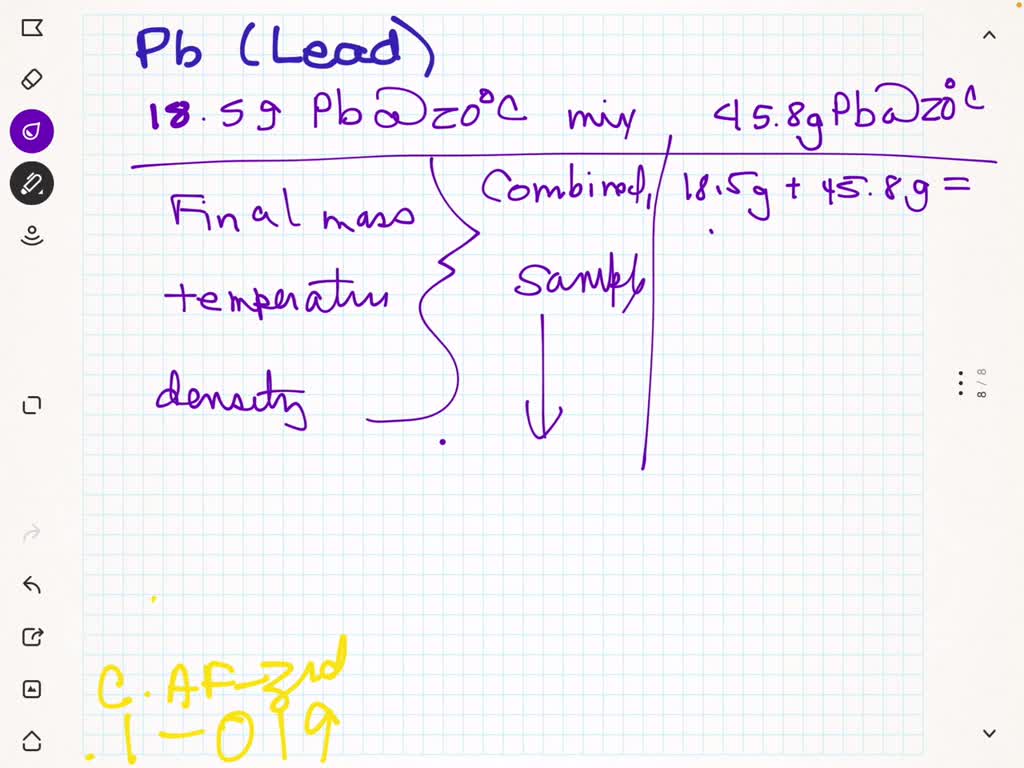 Pb (Lead)
18.5g Pb@20°C mix 45.8g Pb@20°C
Final mass
temperature
density
Combined,
Sample
18.5g + 45.8g =
8/8
C.AF-3rd
.1-019